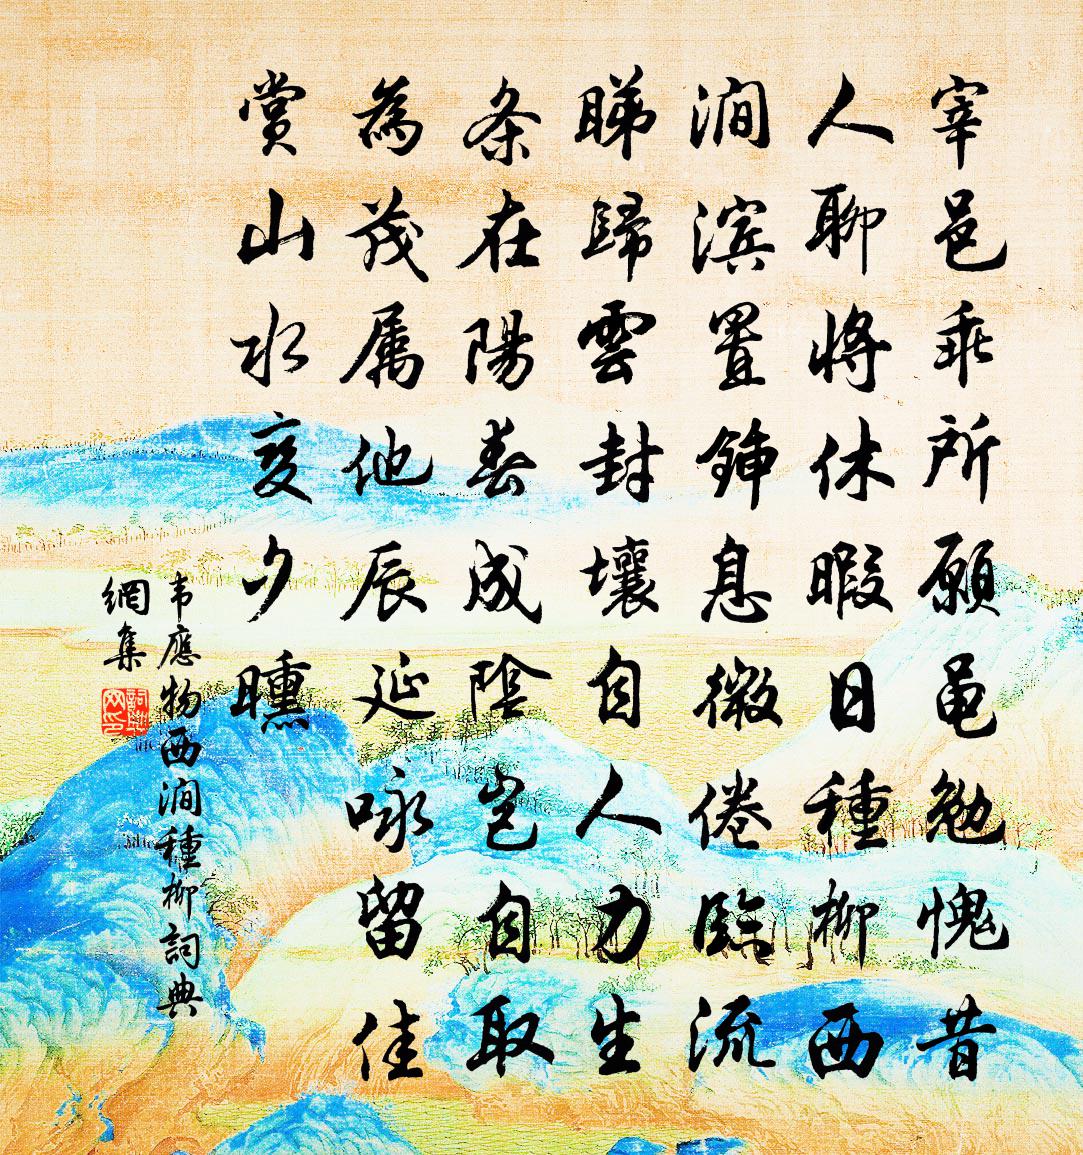 宰邑乖所願黽勉愧昔
人聊將休暇日種柳西
澗滨置鍤息微倦臨流
睇歸雲封壤自人力生
条在陽春成陰豈自取
為茂属他辰延咏留佳
賞山水变夕曛
韦應物西澗種柳詞典
網集